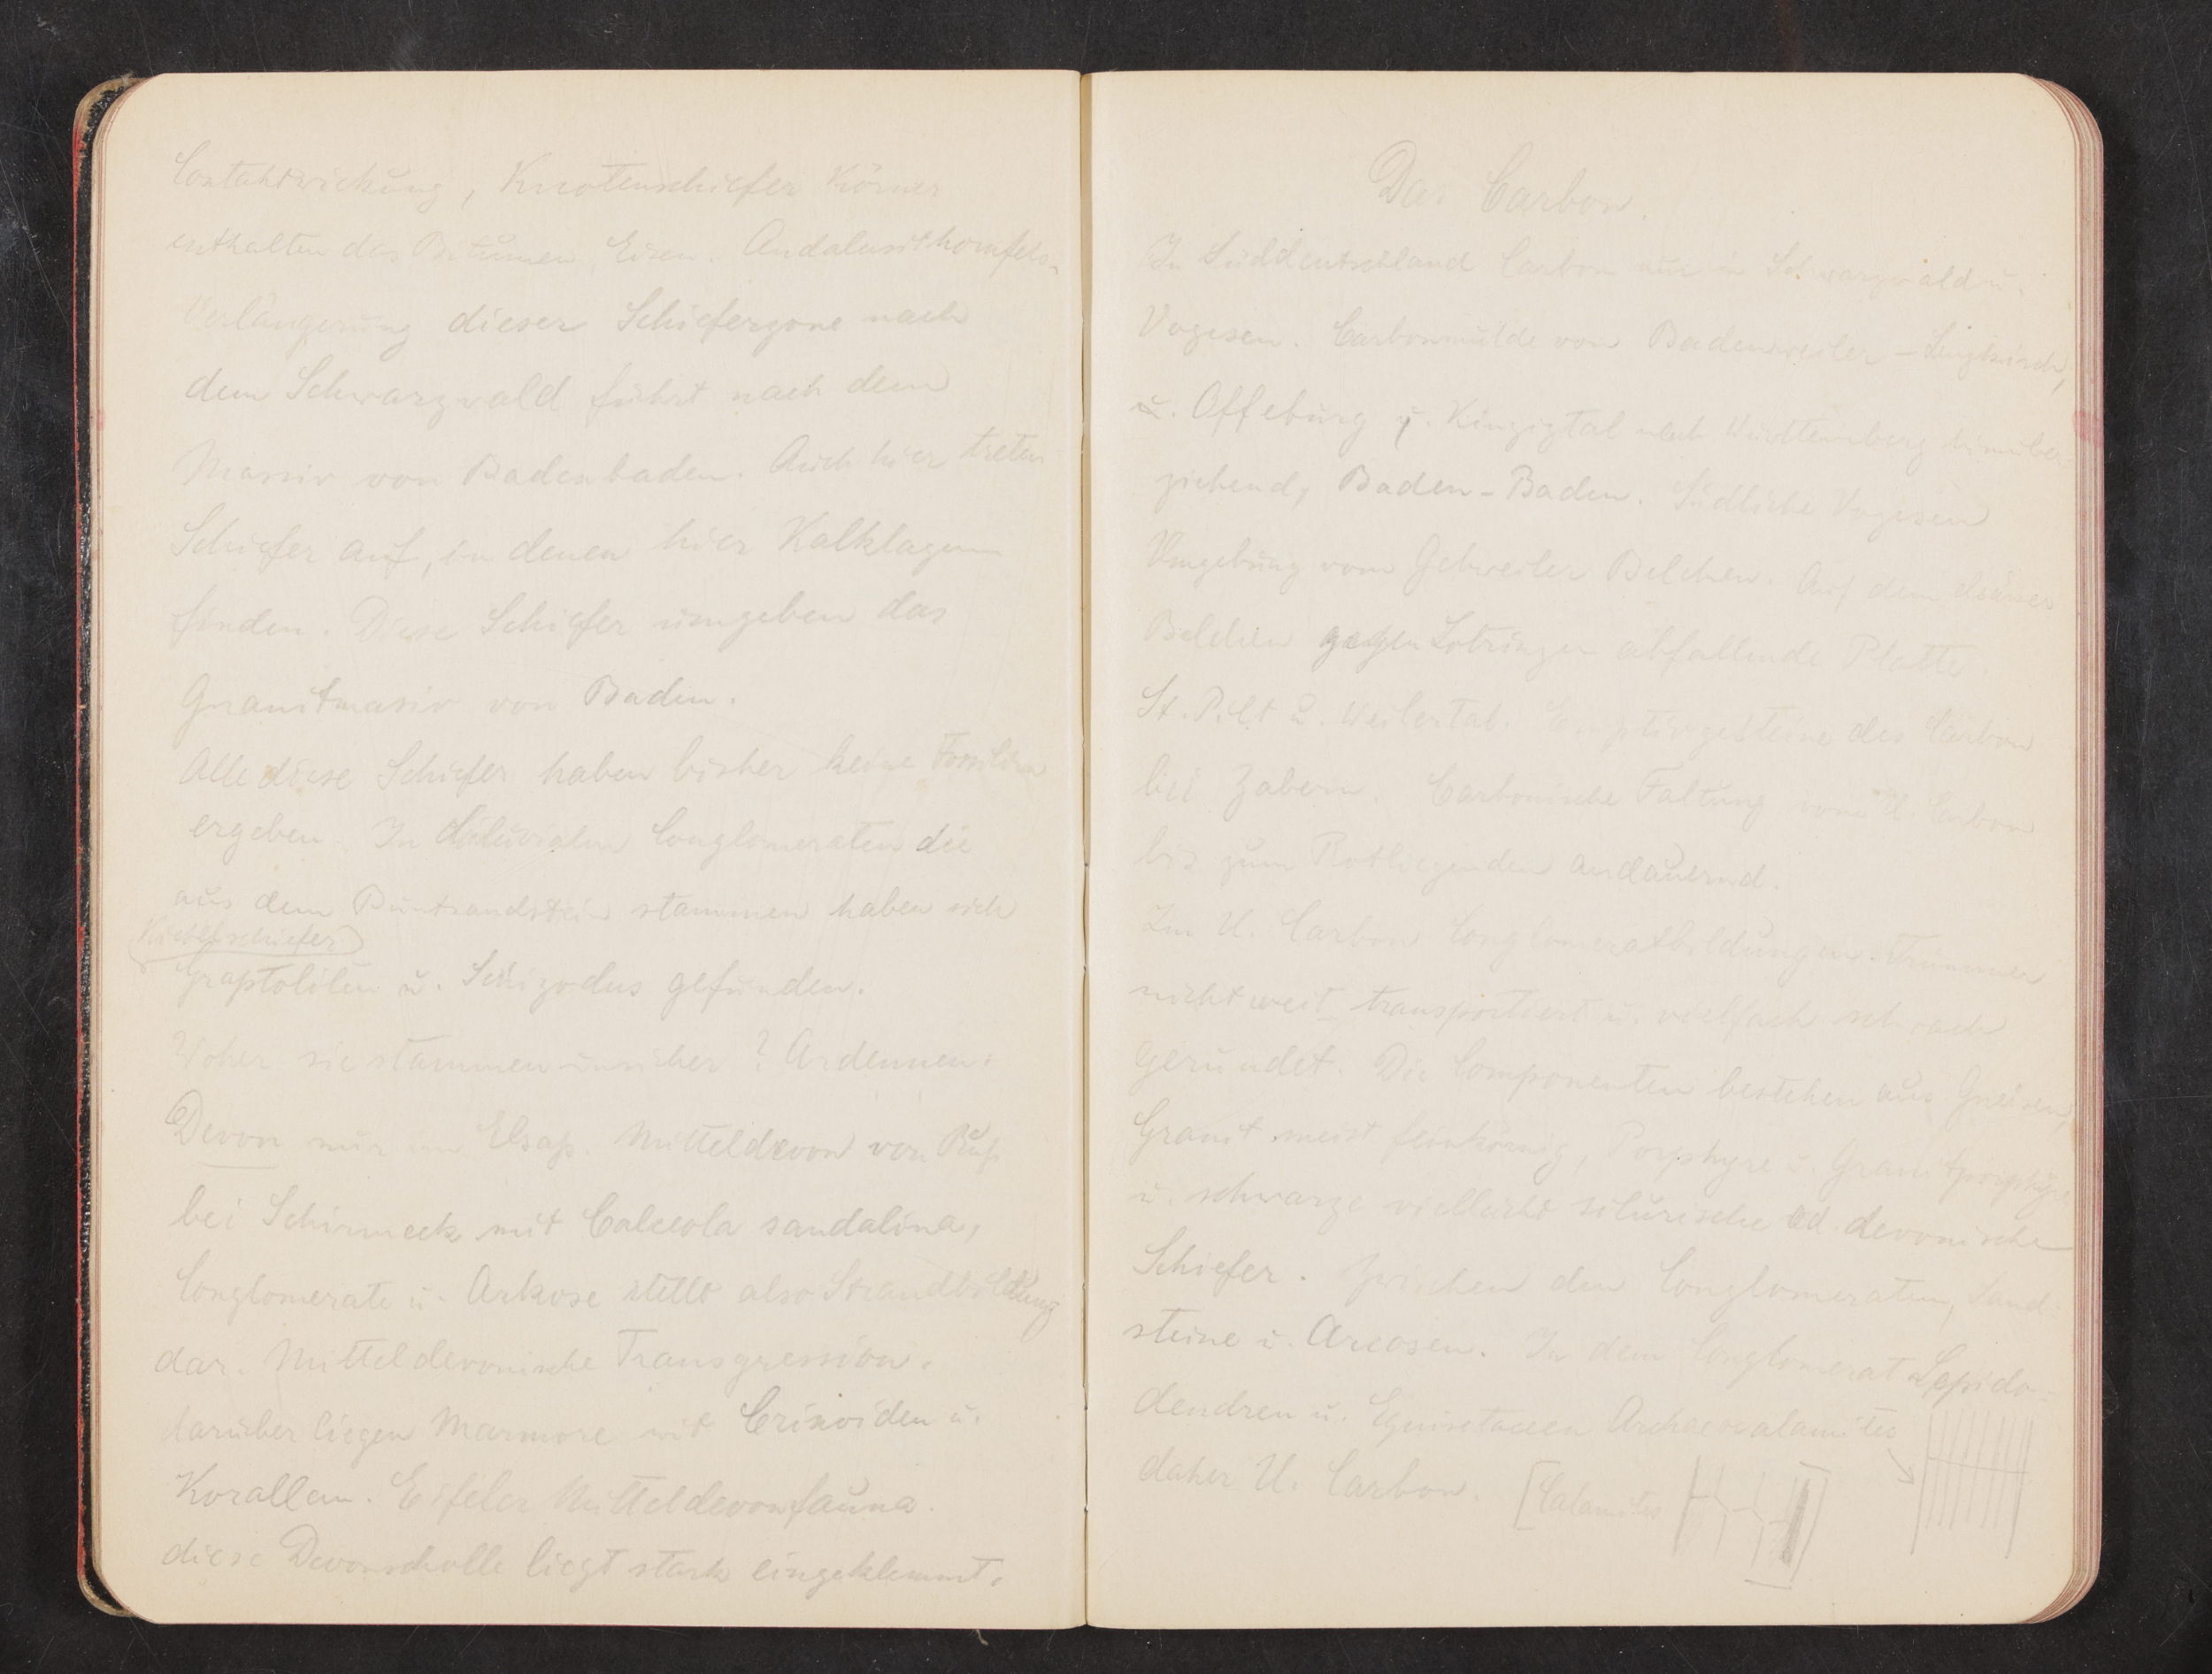 Contaktwirkung, Knotenschiefer Körner
enthalten das Bitumen, Eisen. Andalusithornfels.
Verlängerung dieser Schieferzone nach
dem Schwarzwald führt nach dem
Massiv von Badenbaden. Auch hier treten
Schiefer auf, in denen hier Kalklagen
finden. Diese Schiefer umgeben das
Granitmasiv von Baden.
Alle diese Schiefer haben bisher keine Fossilien
ergeben. In diluvialen Conglomeraten die
aus dem Buntsandstein stammen haben sich
Kieselschiefer
Graptoliten u. Schizodus gefunden.
Woher sie stammen unsicher? Ardennen.
Devon nur im Elsaß. Mitteldevon von Ruß
bei Schirmeck mit Calceola sandalina,
Conglomerate u. Arkose stellt also Strandbildung
dar. Mitteldevonische Transgression.
darüber liegen Marmore mit Crinoiden u.
Korallen. Eifeler Mitteldevonfauna.
diese Devonscholle liegt stark eingeklemmt.
Das Carbon.
In Süddeutschland Carbon nur in Schwarzwald u.
Vogesen. Carbonmulde von Badenweiler - Lenzkirch,
u. Offeburg u. Kinzigtal nach Württemberg hinüber-
ziehend, Baden-Baden. Südliche Vogesen
Umgebung vom Gebweiler Belchen. Auf dem elsässer
Belchen gegen Lotringen abfallende Platte.
St. Pilt u. Weilertal. Eruptivgesteine des Carbon
bei Zabern. Carbonische Faltung vom U. Carbon
bis zum Rotliegenden andauernd.
Im U. Carbon Conglomeratbildungen. Trümmer
nicht weit transportiert u. vielfach schwach
gerundet. Die Componenten bestehen aus Gneisen,
Granit meist feinkörnig, Porphyre u. Granitporphyre
u. schwarze vielleicht silurische od. devonische
Schiefer. Zwischen den Conglomeraten, Sand-
steine u. Arcosen. In dem Conglomerat Lepido-
dendren u. Equisetaceen Archaeocalamites
daher U. Carbon. [Calamites